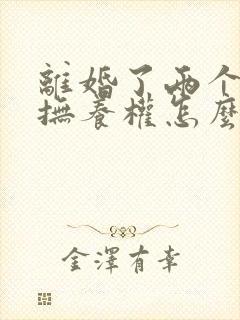 離婚了兩个
撫養權怎麼
金澤有幸